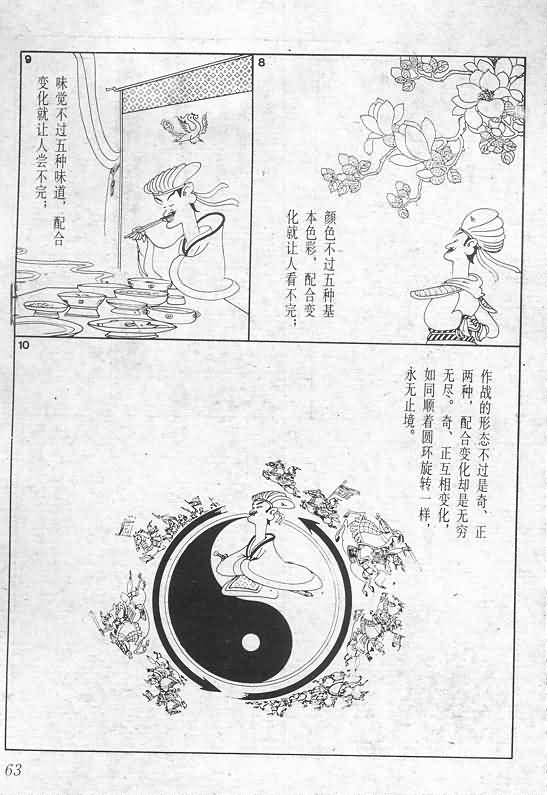 8
颜色不过五种基
本色彩，配合变
化就让人看不完；
9
味觉不过五种味道，配合
变化就让人尝不完；
10
作战的形态不过是奇、正
两种，配合变化却是无穷
无尽。奇、正互相变化，
如同顺着圆环旋转一样，
永无止境。
63